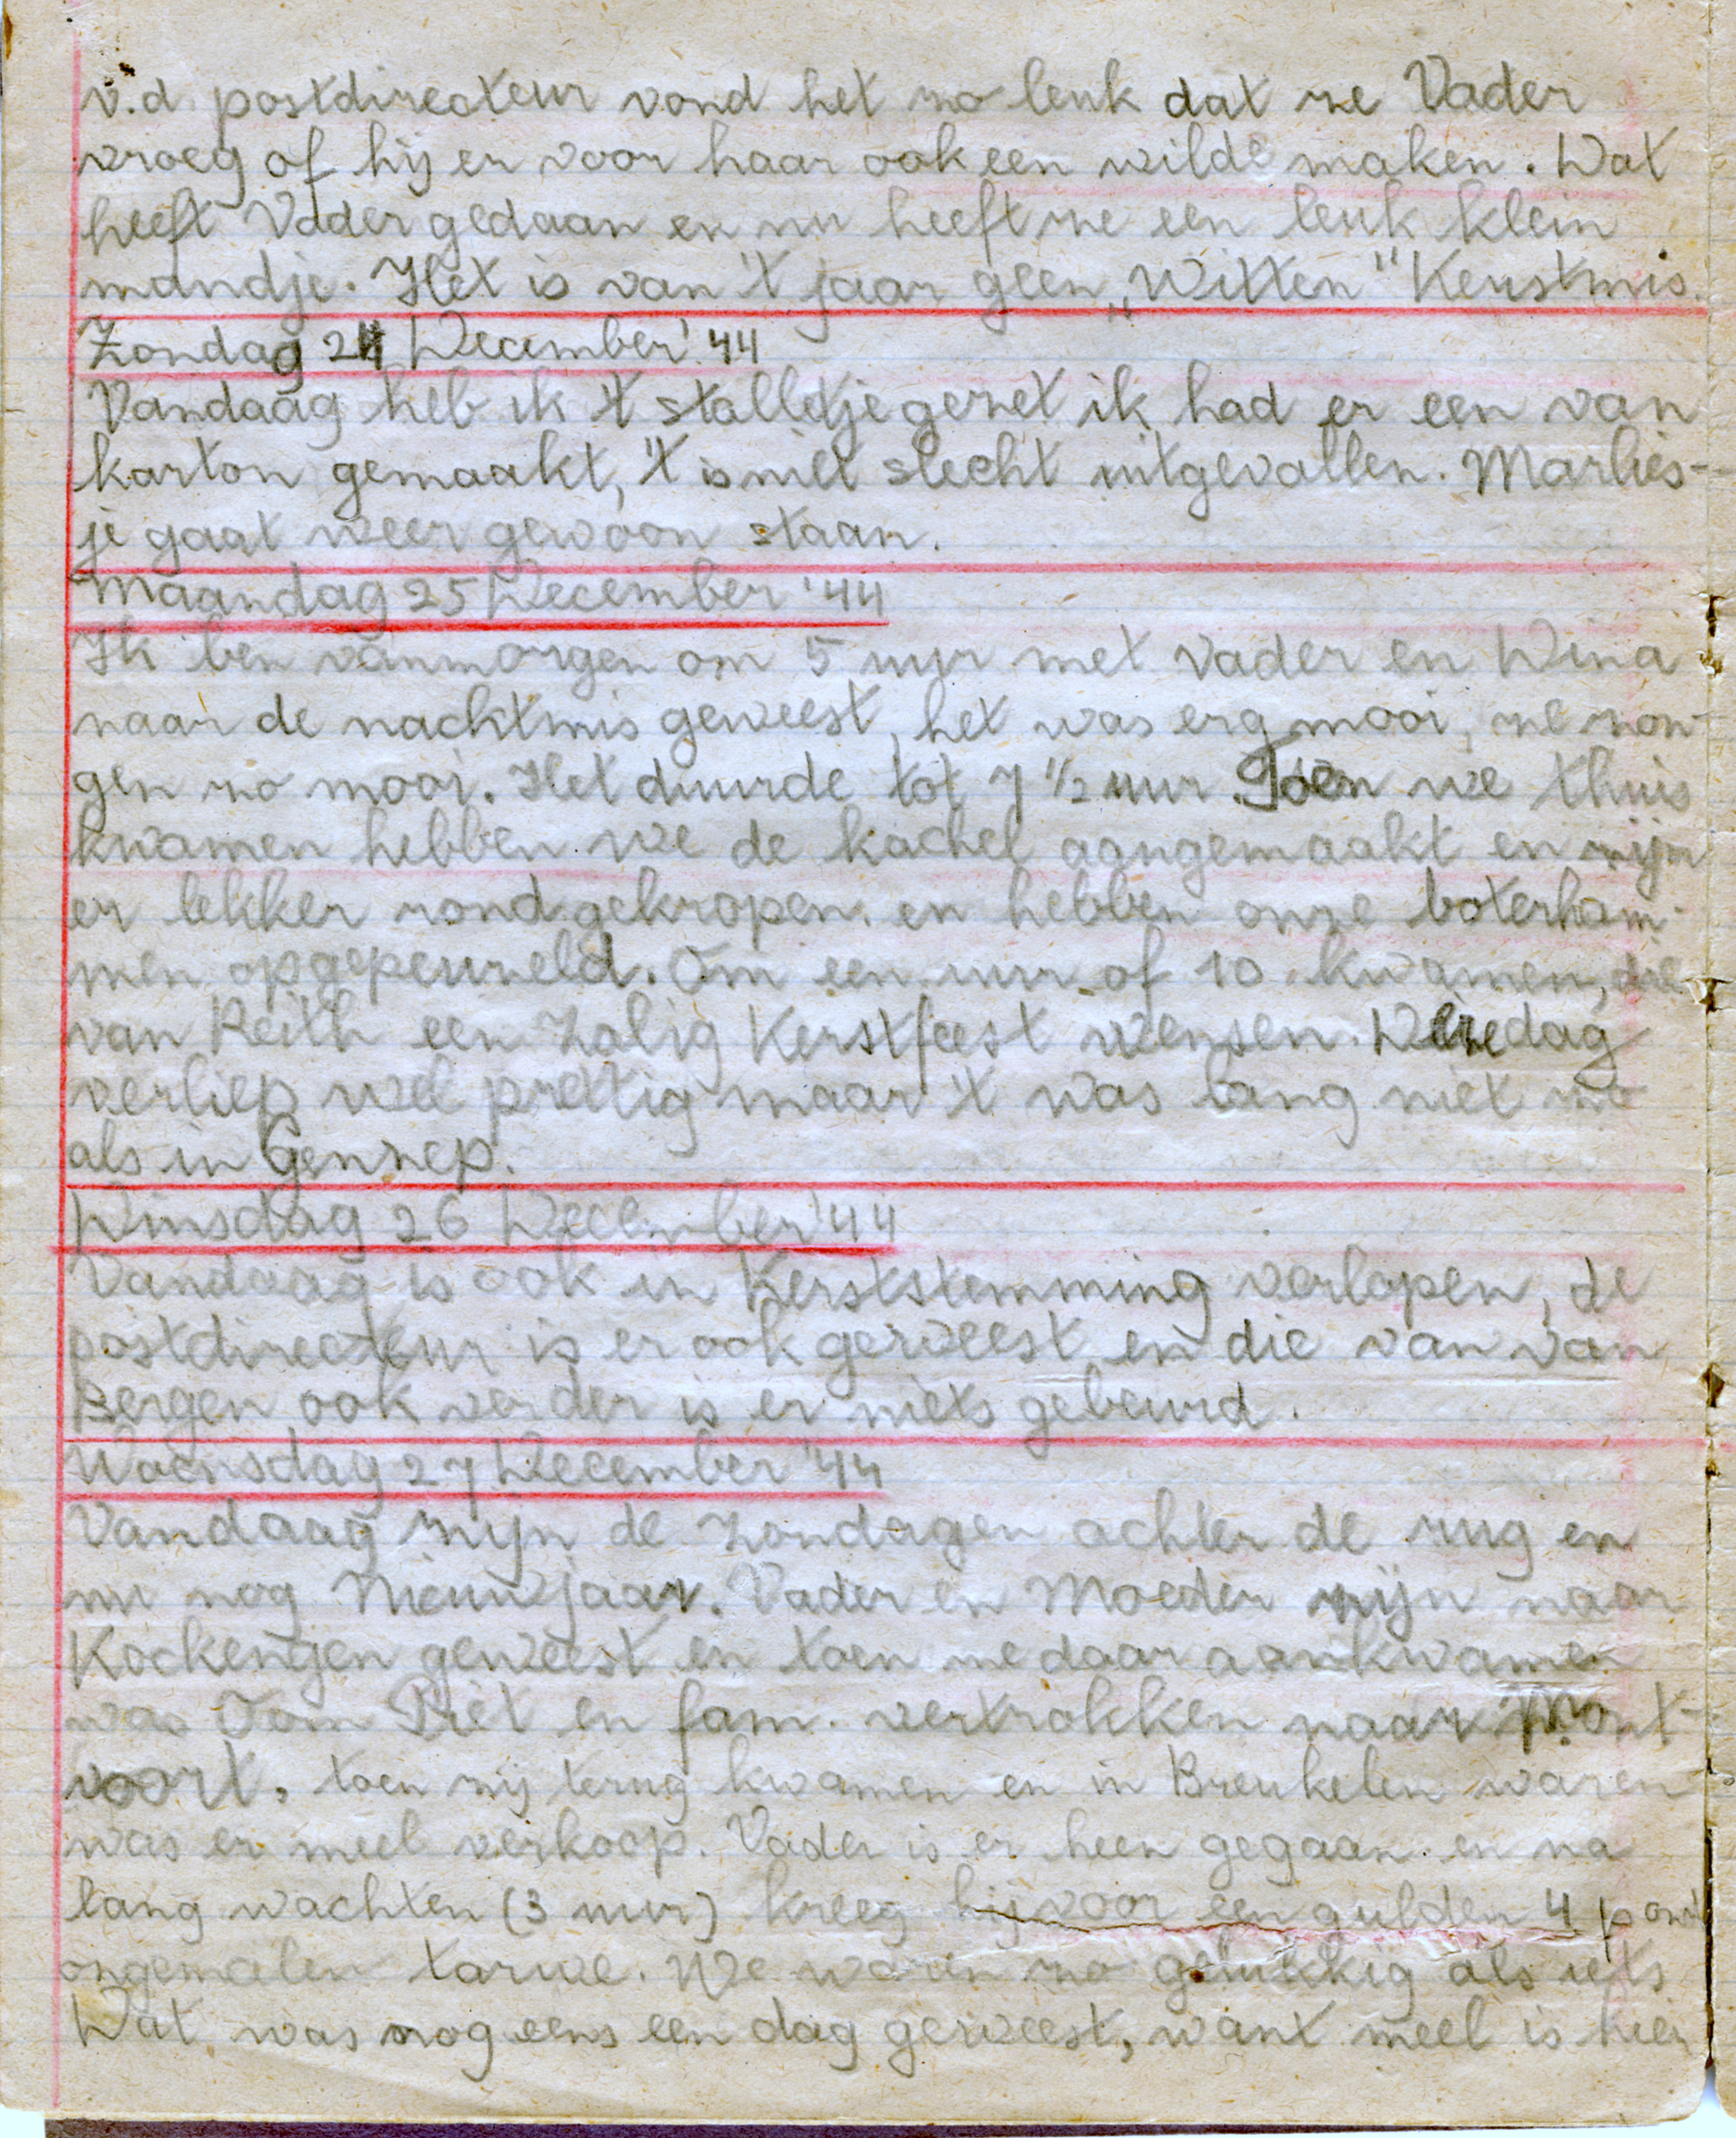 v.d. postdirecteur vond het zo leuk dat ze Vader
vroeg of hij er voor haar ook een wilde maken. Dat
heeft Vader gedaan en nu heeft ze een leuk klein
mandje. Het is van 't jaar geen „Witten" Kerstmis.
Zondag 24 December '44
Vandaag heb ik 't stalletje gezet ik had er een van
karton gemaakt, 't is niet slecht uitgevallen. Marlies-
je gaat weer gewoon staan.
Maandag 25 December '44
Ik ben vanmorgen om 5 uur met Vader en Wina
naar de nachtmis geweest, het was erg mooi, ze zon-
gen zo mooi. Het duurde tot 7 1/2 uur Toen we thuis
kwamen hebben we de kachel aangemaakt en zijn
er lekker rond gekropen. en hebben onze boterham-
men opgepeuzeld. Om een uur of 10 kwamen, die
van Reith een Zalig Kerstfeest wensen. Deze dag
verliep wel prettig maar 't was lang niet zo
als in Gennep.
Dinsdag 26 December '44
Vandaag is ook in Kerststemming verlopen, de
postdirecteur is er ook geweest en die van van
Bergen ook verder is er niets gebeurd.
Woensdag 27 December '44
Vandaag zijn de Zondagen achter de rug en
nu nog Nieuwjaar. Vader en Moeder zijn naar
Kockengen geweest en toen ze daar aankwamen
was Oom Piet en fam. vertrokken naar Mont-
voort. toen zij terug kwamen en in Breukelen waren
was er meel verkoop. Vader is er heen gegaan. en na
lang wachten (3 uur) kreeg hij voor een gulden 4 pond
ongemalen tarwe. We waren zo gelukkig als iets.
Dat was nog eens een dag geweest, want meel is hier